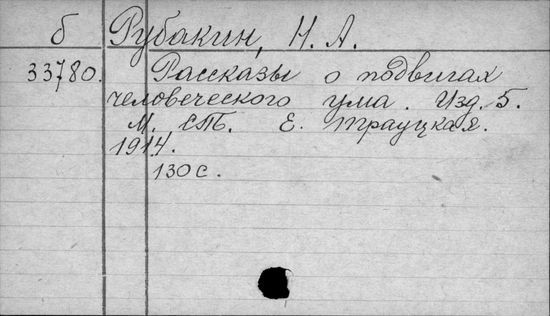 б Рубакин, Н. А.
33780. Рассказы о подвигах
человеческого ума. Изд. 5.
М. Е. Трауцкая.
1914.
130 с.